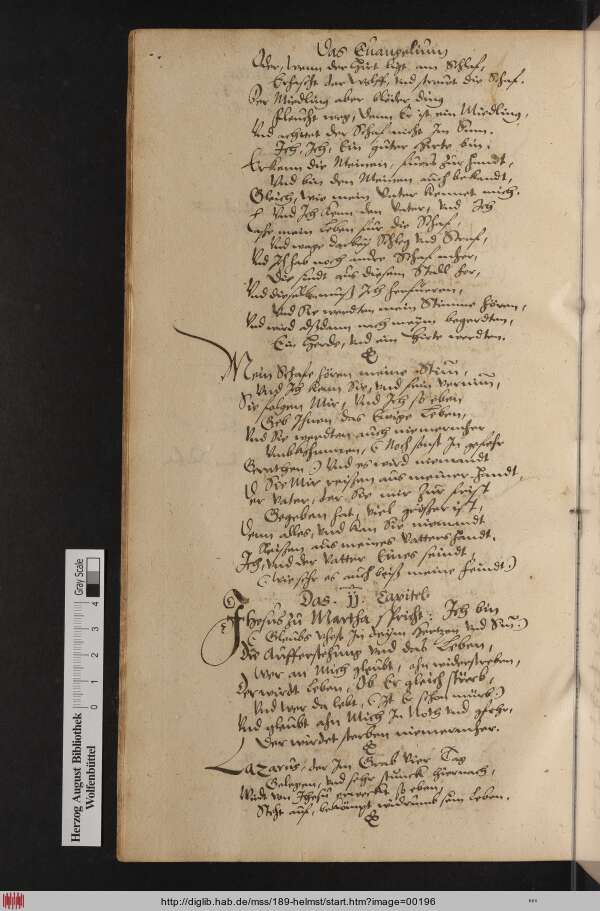 Das Euangelium
Oder, wenn der Hirt ligt am Schlaf,
Erhascht der Wolff, und strewt die Schaf.
Der Miedling aber blöder ding
fleucht weg, denn Er ist ein Miedling,
Und achtet der Schaf nicht Im Sinn.
Ich, Ich, Ein guter Hirte bin,
Erkenn die Meinen, zur handt,
Und bin den Meinen auch bekandt,
Gleich, wie mein Vater kennet mich.
Und Ich kenn den Vater, und Ich
Lass mein Leben für die Schaf,
Und wage Schleg und Straf,
Und Ich hab noch andre Schaf
Die sindt aus diesem Stall
Und dieselben muß Ich herfüeren,
Und Sie werdten mein Stimme hören,
Und wird alßdann nach
Ein Herde, und ein Hirte werdten.
Mein Schafe hören meine Stim,
Und Ich kenn Sie, und
Sie folgen Mir, Und Ich so eben
Geb Ihnen das Ewige Leben,
Und Sie werdten auch niemermher
Umbkhummen, (Noch sonst In gefehr
Gerathen:) Und es wird niemandt
Sie Mir reißen aus meiner handt,
Der Vater, der Sie mir zur frist
Gegeben hat, viel größer ist,
Denn alles, und kan Sie niemandt
Reißen aus meines Vatters handt.
Ich, und der Vatter Eines seindt,
(Wie sehr es auch beiß meine Feindt:)
Das. 11. Capitel.
Jhesus zu Martha spricht: Ich bin
(Glaubs vhest In deim Hertzen und Sin:)
Die Aufferstehung und das Leben,
Wer an Mich glaubt, ahn widerstreben,
Der wirdt leben, Ob Er gleich stürb,
Und wer da lebt, (Ist Er schon mürb:)
Und glaubt ahn Mich In Noth und gfehr,
Der wirdet sterben niemermher.
Lazarus, der Im Grab Vier Tag
Gelegen, und sehr stunck hiernach,
Wirdt von Jhesu erweckt so eben,
Steht auf, bekömpt widrumb sein Leben.
Gray Scale
0 1 2 3 4
Herzog August Bibliothek
Wolfenbüttel
http://diglib.hab.de/mss/189-helmst/start.htm?image=00196